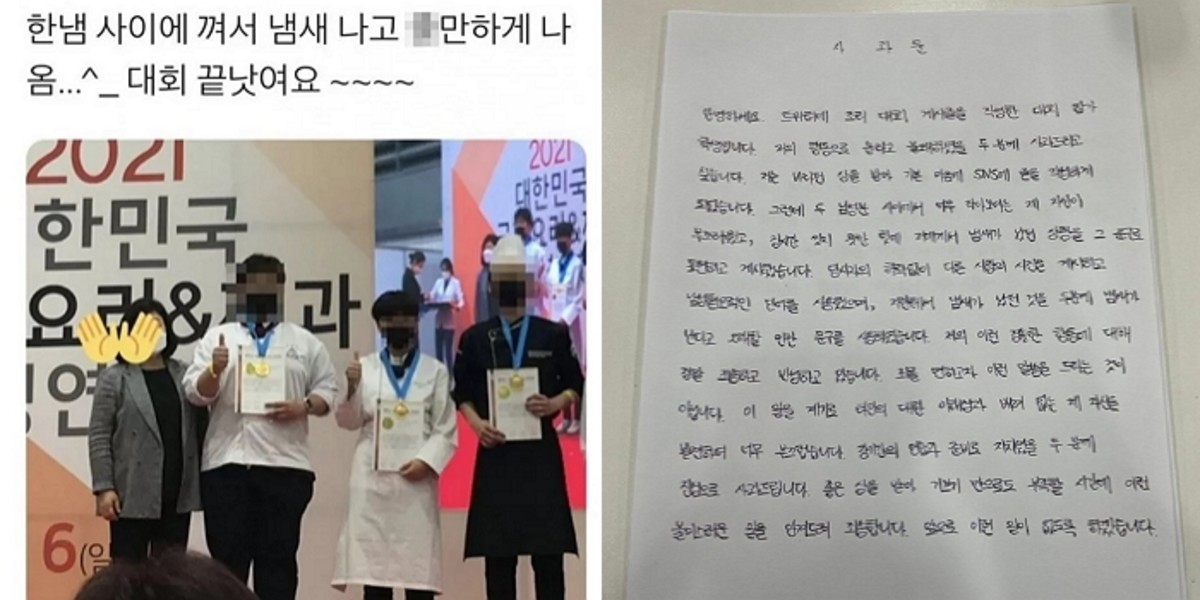 한냄 사이에 껴서 냄새 나고 만하게 나
옴...^_ 대회 끝낫여요 ~~~~
2021
한민국
요리& 과
경연
6(일
2021
대한민국
사 과 문
안녕하세요. 트위터에 조리 대회 게시글을 작성한 대회 참가
학생입니다. 저의 행동으로 놀라고 불쾌하셨을 두 분께 사과드리고
싶습니다. 저는 상을 받아 기쁜 마음에 SNS에 글을 작성하게
되었습니다. 그런데 두 남성분 사이에서 너무 작아보이는 제 자신이
부끄러웠고, 냄새가 났던 상황을 그 문구로
표현하고 게시했습니다. 당사자의 허락없이 다른 사람의 사진을 게시하고
단어를 사용했으며, 냄새가 났던 것을 두분께 냄새가
난다고 오해할 만한 문구를 사용하였습니다. 저의 이런 경솔한 행동에 대해
정말 죄송하고 반성하고 있습니다. 죄를 면하고자 이런 말씀을 드리는 것이
아닙니다. 이 일을 계기로 제 자신을
돌아보며 너무 부끄럽습니다. 두 분께
진심으로 사과드립니다. 좋은 상을 받아 기쁘기 만으로도 부족할 시간에 이런
불미스러운 일을 안겨드려 죄송합니다. 앞으로 이런 일이 없도록 하겠습니다.